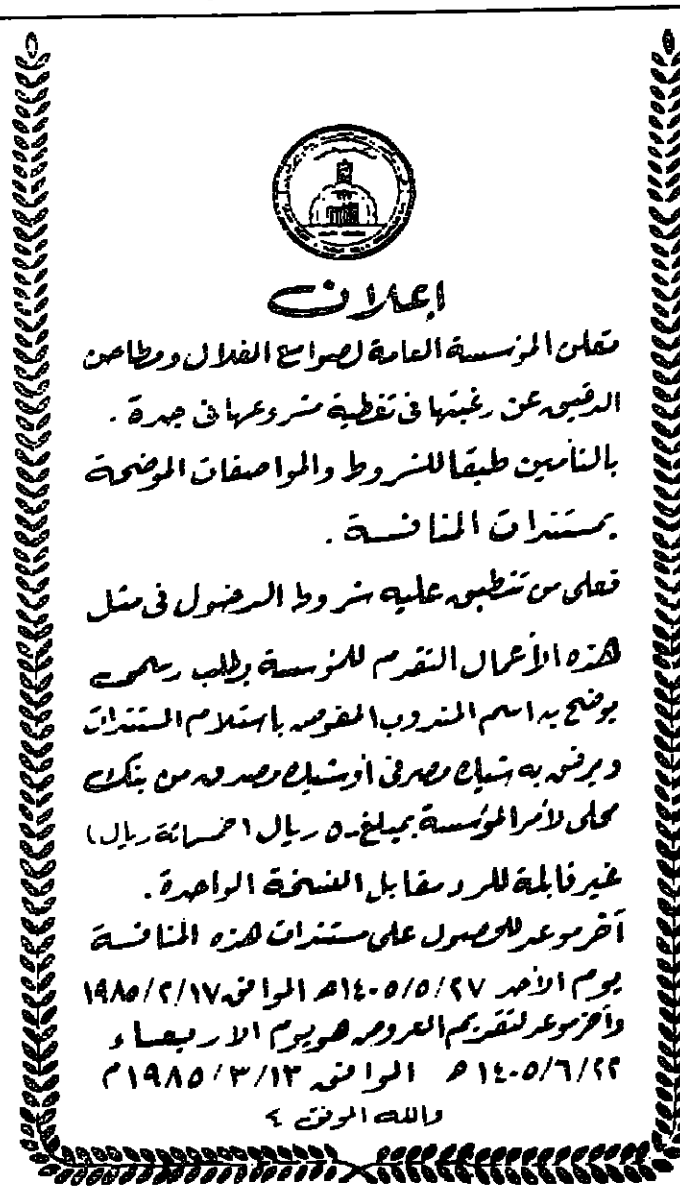 إعلان
تعلن المؤسسة العامة لصوامع الغلال ومطاحن
الدقيق عن رغبتها في تغطية مشروعها في جدة .
بالتأمين طبقا للشروط والمواصفات الموضحة
بمستندات المنافسة .
فعلى من تنطبق عليه شروط الدخول في مثل
هذه الأعمال التقدم للمؤسسة بطلب رسمي
يوضح به اسم المندوب المفوض باستلام المستندات
ويرفق به شيك مصرفي أو شيك مصدق من بنك
محلي لأمر المؤسسة بمبلغ ٥٠٠ ريال (خمسمائة ريال)
غير قابلة للرد مقابل النسخة الواحدة .
آخر موعد للحصول على مستندات هذه المنافسة
يوم الأحد ١٤٠٥/٥/٢٧هـ الموافق ١٩٨٥/٢/١٧
وآخر موعد لتقديم العروض هو يوم الاربعاء
١٤٠٥/٦/٢٢ هـ الموافق ١٩٨٥/٣/١٣م
والله الموفق